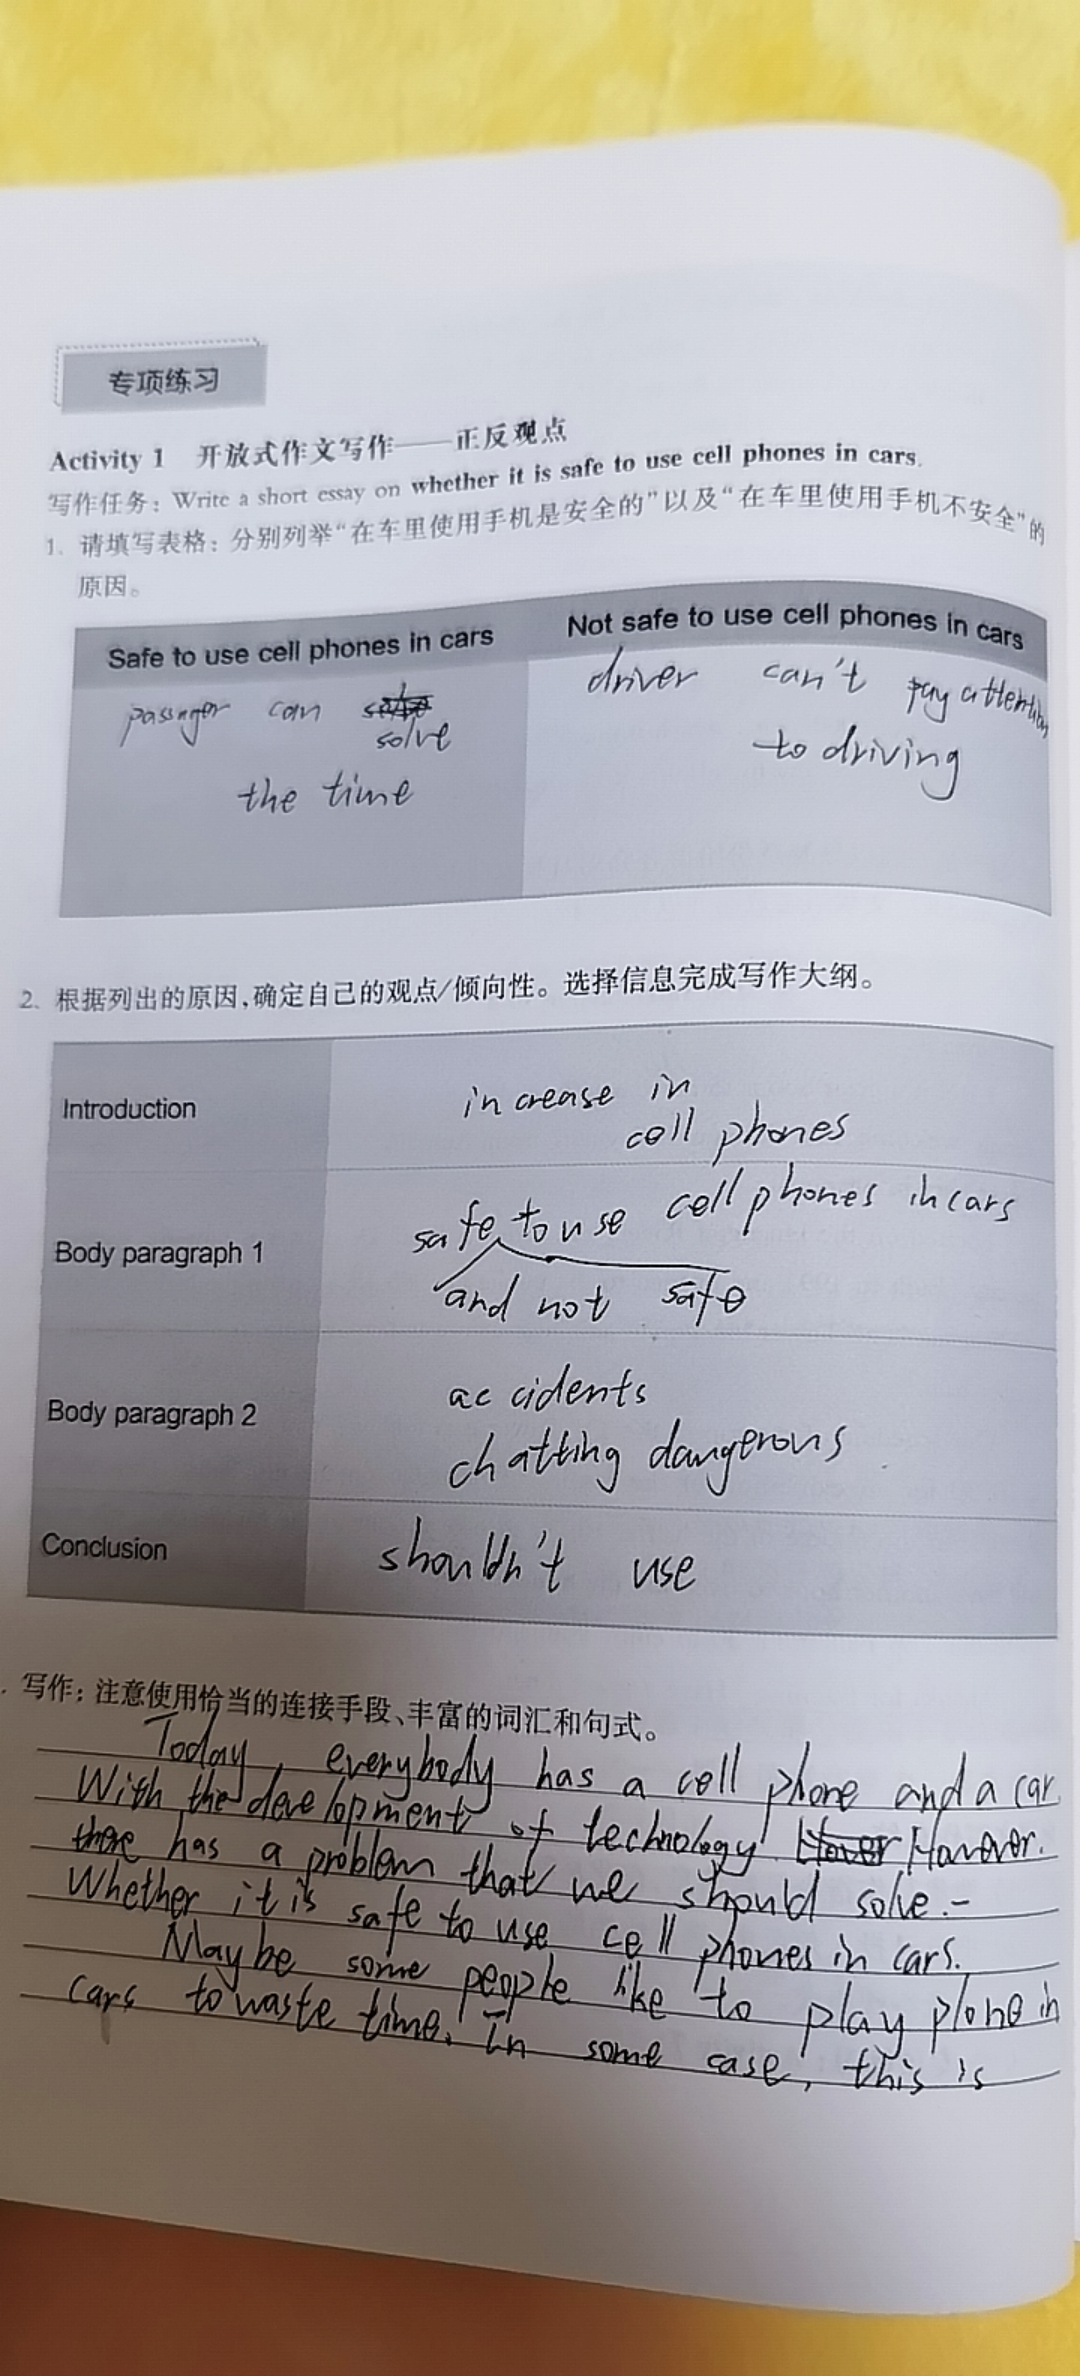 专项练习
Activity 1 开放式作文写作——正反观点
写作任务：Write a short essay on whether it is safe to use cell phones in cars.
1. 请填写表格：分别列举“在车里使用手机是安全的”以及“在车里使用手机不安全”的
原因。
Safe to use cell phones in cars
Not safe to use cell phones in cars
passnger can
solve
the time
driver can't pay attention
to driving
2. 根据列出的原因,确定自己的观点/倾向性。选择信息完成写作大纲。
Introduction
increase in
cell phones
Body paragraph 1
safe to use cell phones in cars
and not safe
Body paragraph 2
accidents
chatting dangerous
Conclusion
shouldn't use
. 写作：注意使用恰当的连接手段、丰富的词汇和句式。
Today, everybody has a cell phone and a car
With the development of technology. Hovever.
there has a problem that we should solve.-
Whether it is safe to use cell phones in cars.
Maybe some people like to play plone in
cars to waste time. In some case, this is